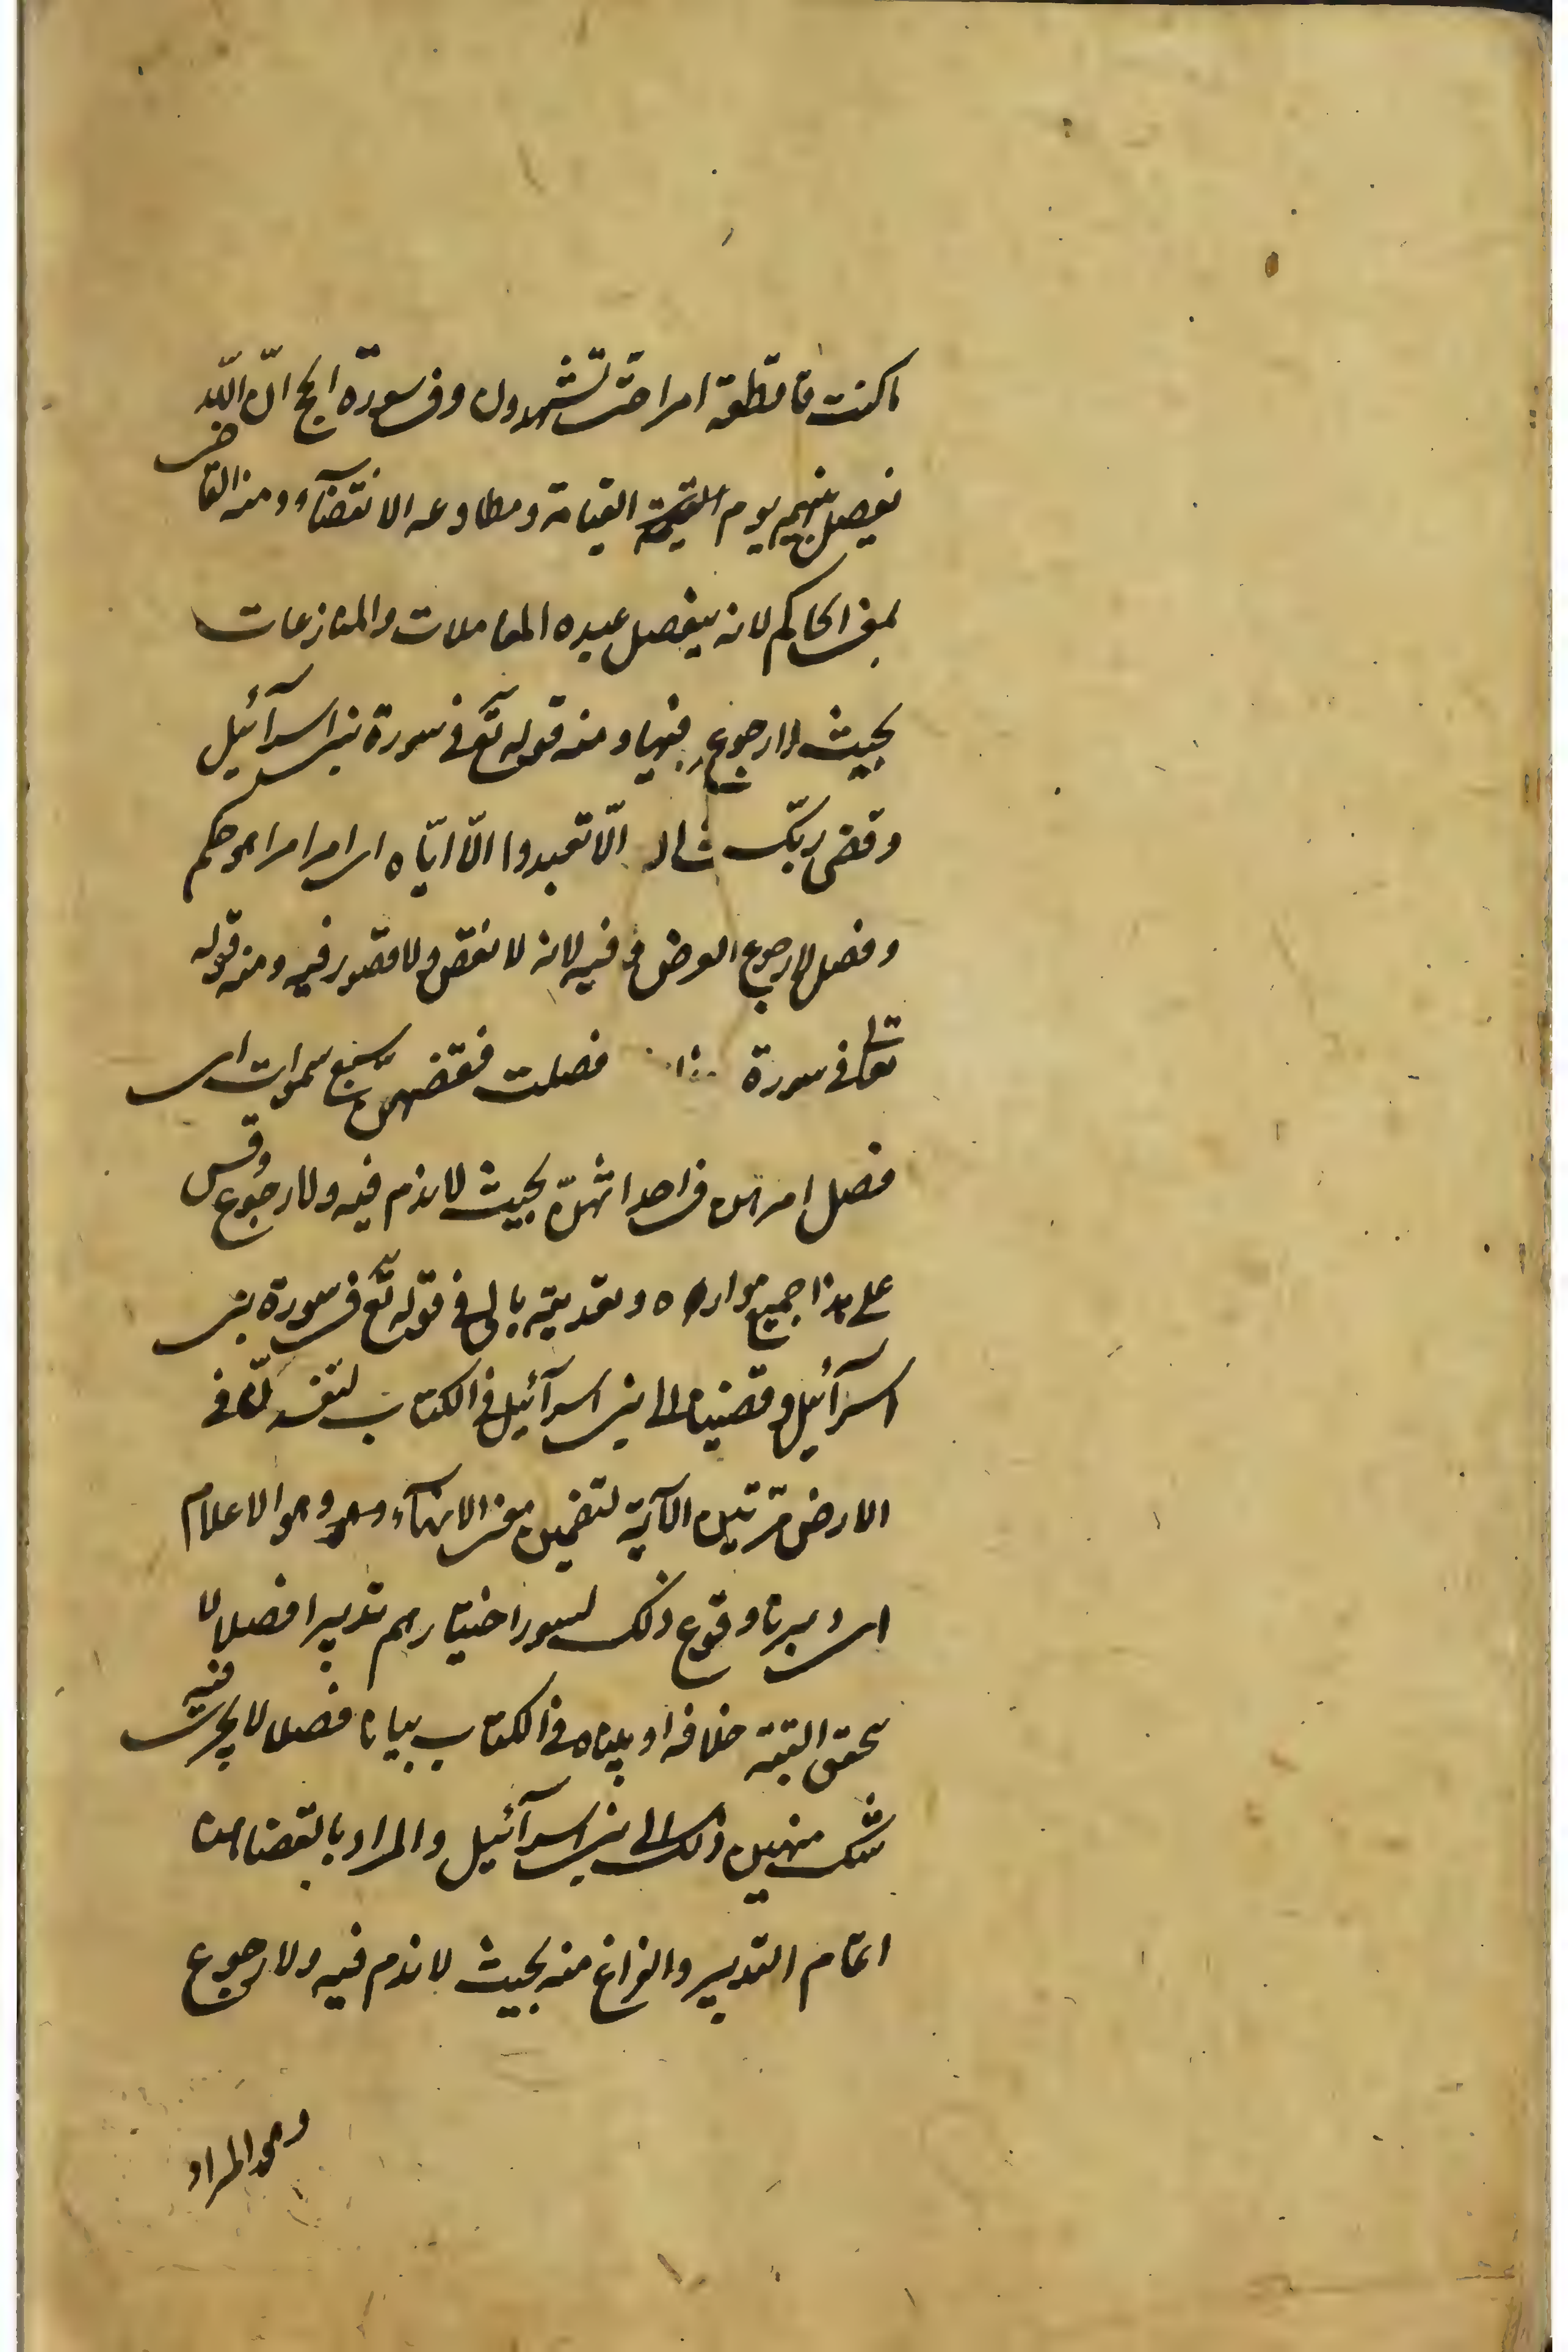 ما كنت قاطعة امرا حتّى تشهدون وفي سورة الحج انّ اللّه
يفصل بينهم يوم القيمة القيامة ومطاوعه الانقضآء ومنه القاضي
بمعنى الحاكم لانه يفصل عنده المعاملات والمنازعات
بحيث لا رجوع فيها ومنه قوله تع في سورة بني اسرآئيل
وقضى ربّك الّا تعبدوا الّا ايّاه اى امر امرا هو حكم
وفصل لا رجوع لعوض فيه لانه لا نقص ولا قصور فيه ومنه قوله
تعالى في سورة فصلت فقضيهنّ سبع سموات اى
فصل امرهن في احداثهنّ بحيث لا ندم فيه ولا رجوع وقس
على هذا جميع موارده وتعديته بالى في قوله تع في سورة بنى
اسرآئيل وقضينا الى بنى اسرآئيل في الكتاب لتفسدنّ في
الارض مرّتين الآية لتضمين معنى الانهآء وهو الاعلام
اى دبرنا وقوع ذلك لسوء اختيارهم تدبيرا فصلا لا
يتحقق البتة خلافه او بيناه في الكتاب بيانا فصلا لا يجرى فيه
شك منهين ذلك الى بنى اسرآئيل والمراد بالقضا هنا
اتمام التدبير والفراغ منه بحيث لا ندم فيه ولا رجوع
وهو المراد